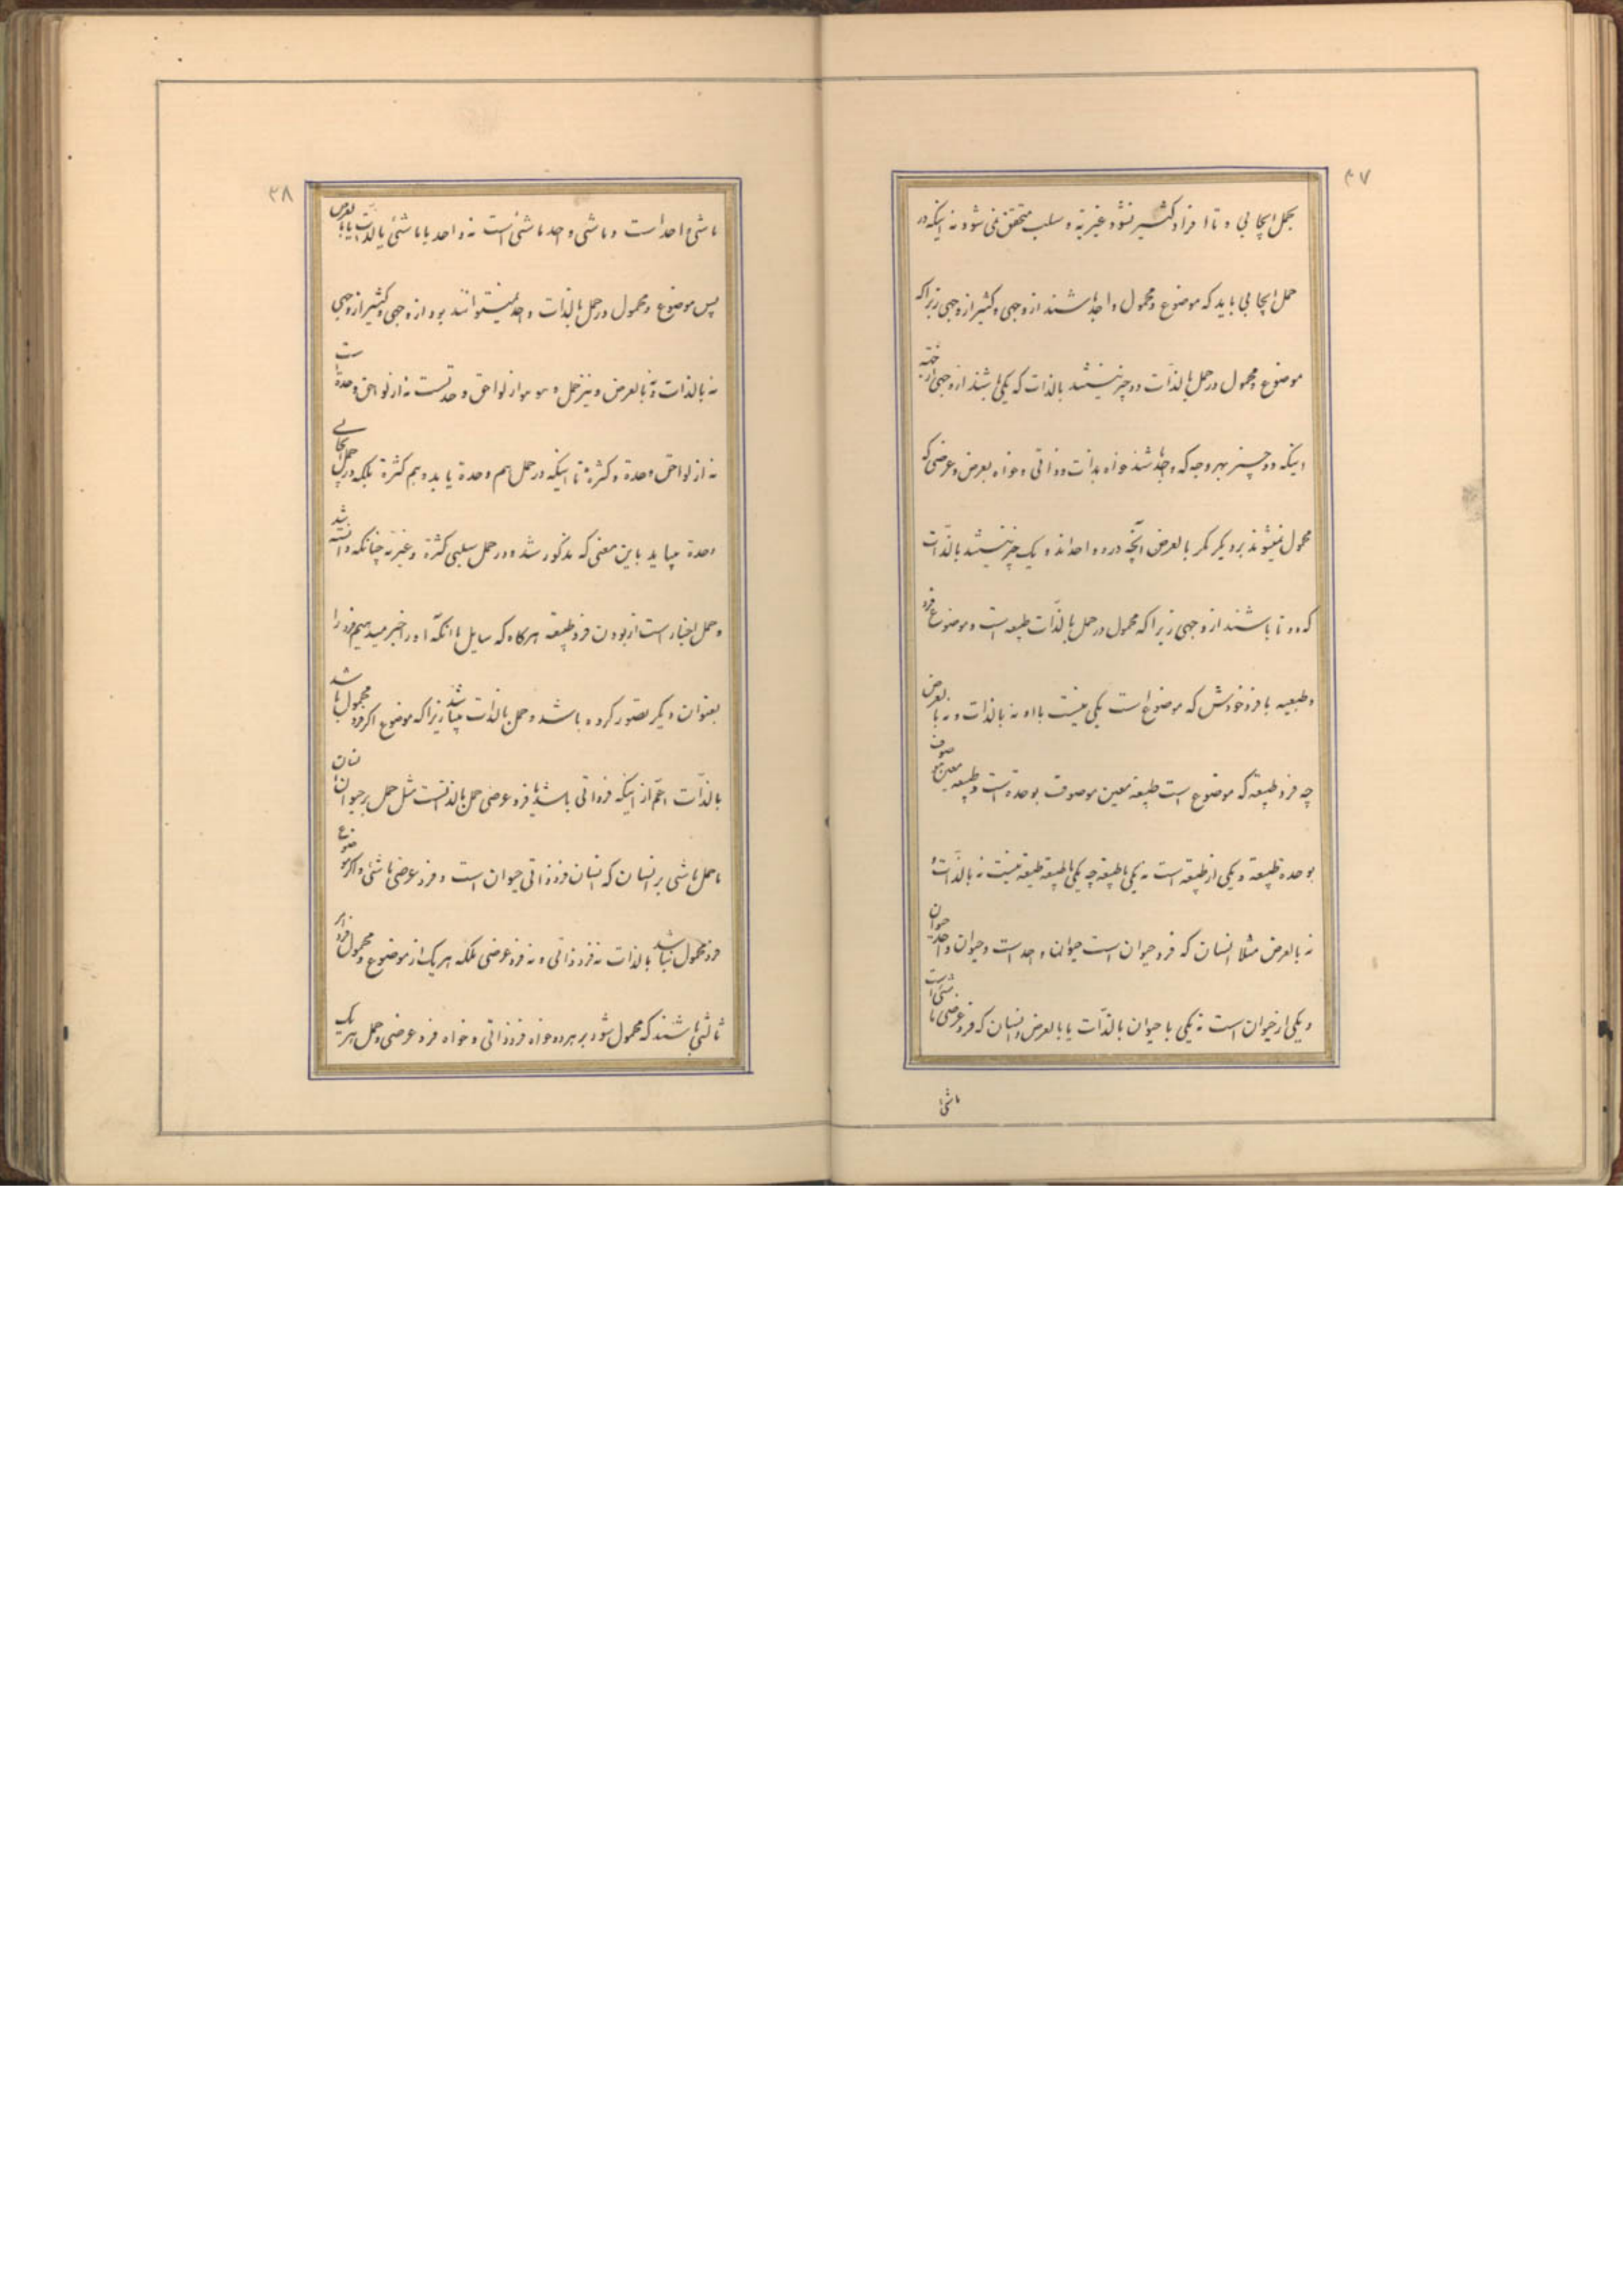 ۴۷
بحمل ایجابی و تا افراد کثیر نشود غیریة و سلب متحقق نمی شود نه اینکه در
حمل ایجابی باید که موضوع و محمول واحد باشند از وجهی و کثیر از وجهی زیرا که
موضوع و محمول در حمل بالذّات دو چیز نیستند بالذات که یکی باشند از وجهی از
اینکه دو چیز بهر وجه که واحد باشند خواه بذات و ذاتی و خواه بعرض و عرضی که
محمول نمیشوند بر دیگر مگر بالعرض آنچه در دو واحداند و یک چیز نیستند بالذّات
که دو تا باشند از وجهی زیرا که محمول در حمل بالذّات طبیعه است و موضوع فرد
و طبیعیه با فرد خودش که موضوع است یکی نیست با او نه بالذات و نه بالعرض
چه فرد طبیعة که موضوع است طبیعة معین موصوف بوحدة است و طبیعه معین موصوف
بوحدة طبیعة و یکی از طبیعة است نه یکی با طبیعة چه یکی با طبیعة طبیعة نیست نه بالذّات و
نه بالعرض مثلا انسان که فرد حیوان است حیوان واحد است و حیوان واحد حیوان
و یکی از حیوان است نه یکی با حیوان بالذّات یا بالعرض و انسان که فرد عرضی ماشی است
ماشی
۴۸
ماشی واحد است و ماشی واحد ماشی است نه واحد با ماشئی بالذّات یا بالعرض
پس موضوع و محمول در حمل بالذّات واحد نمیتوانند بود از وجهی و کثیر از وجهی
نه بالذات و نه بالعرض و نیز حمل و هو هو از لواحق وحدتست نه از لواحق وحدة است
نه از لواحق وحدة و کثرة تا اینکه در حمل هم وحدة یابد و هم کثرة بلکه در حمل ایجابی
وحدة میباید باین معنی که مذکور شد و در حمل سلبی کثرة و غیریة چنانکه دانسته شد
و حمل اخبار است از بودن فرد طبیعة هرگاه که سایل با انکّه او را خبر میدهیم فرد را
بعنوان دیگر تصور کرده باشد و حمل بالذات میباشد زیرا که موضوع اگر فرد محمول باشد
بالذّات اعمّ از اینکه فرد ذاتی باشد یا فرد عرضی حمل بالذاتست مثل حمل بر حیوان انسان
یا حمل ماشی بر انسان که انسان فرد ذاتی حیوان است و فرد عرضی ماشئی و اگر موضوع
فرد محمول نباشد بالذات نه فرد ذاتی و نه فرد عرضی بلکه هر یک از موضوع و محمول فرد امر
ثالثی باشند که محمول شود بر هر دو خواه فرد ذاتی و خواه فرد عرضی و حمل هر یک